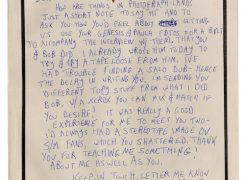 HOW ARE THINGS IN PHOTOGRAPH-LAND?
JUST A SHORT NOTE TO SAY HI AND TO
ASK YOU HOW YOU'D FEEL ABOUT GETTING
US USE YOUR GENESIS & PAULA FOTOS FOR A BOLT
TO ACCOMPANY THE INTERVIEW W/ THEM THAT I
& BOB DID. I ALREADY WROTE HIM TODAY TO
TRY & PRY A TAPE LOOSE FROM HIM. I'VE
HAD TROUBLE FINDING A SOLO DUB- HENCE
THE DELAY IN WRITING YOU. I'M SENDING YOU
DIFFERENT TOPY STUFF FROM WHAT I DID
BOB, W/A XEROX YOU CAN ASK & MATCH IF
YOU DESIRE! IT WAS REALLY A GOOD
EXPERIENCE FOR ME TO MEET YOU TWO-
I'D ALWAYS HAD A STEREOTYPE IMAGE ON
S/M FANS, WHICH YOU SHATTERED. THANK
YOU FOR TEACHING ME SOMETHING!
ABOUT ME AS WELL AS YOU.
KEEP IN TOUCH, LETTER ME KNOW